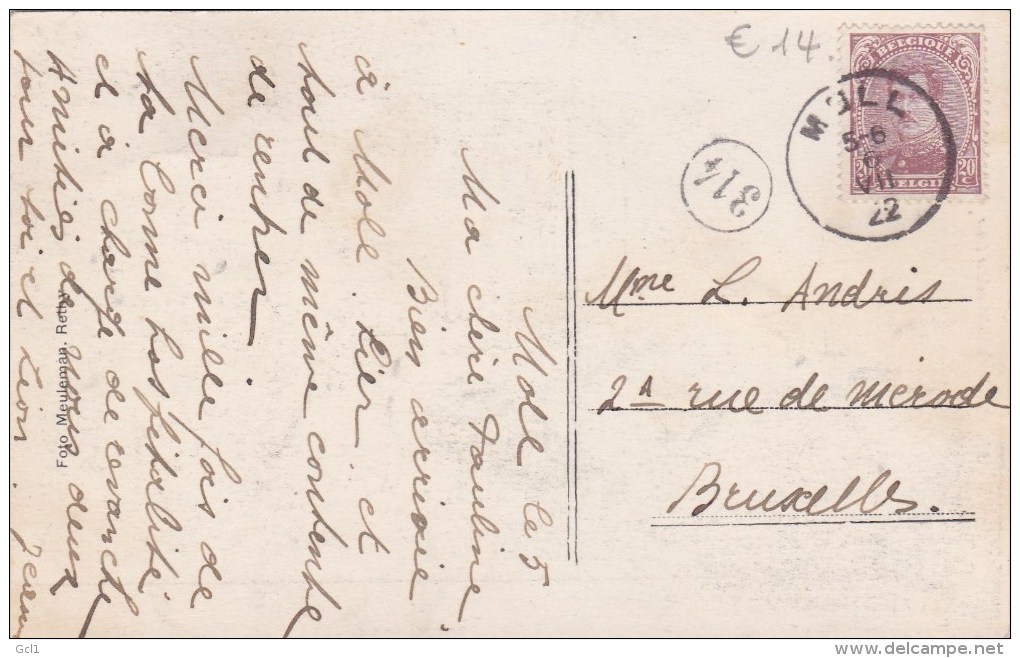 Molle le 5
Ma chère Pauline
Bien arrivée
à Molle hier et
tout de même contente
de rentrer
Merci mille fois de
ta bonne hospitalité
et à charge de revanche
Amitiés de nous deux
pour toi et Léon
Foto Meuleman. Rethy.
€ 14
BELGIQUE
20 C 20 C
BELGIË
MOLL
5-6
VII
22
314
Mme L. Andris
2A rue de Merode
Bruxelles.
Gcl1
www.delcampe.net